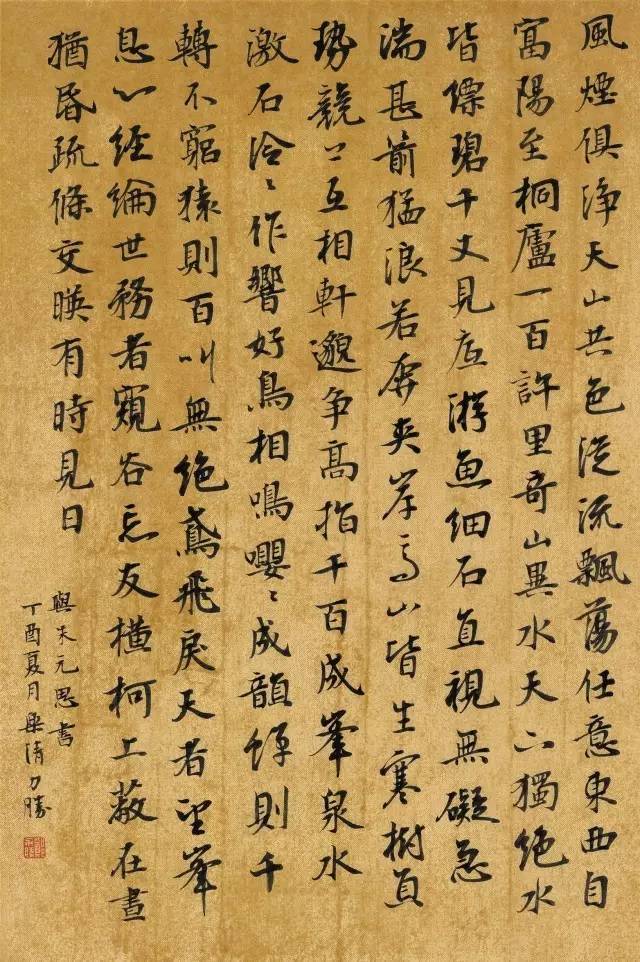 風煙俱淨天山共色從流飄蕩任意東西自
富陽至桐廬一百許里奇山異水天下獨絕水
皆縹碧千丈見底游魚細石直視無礙急
湍甚箭猛浪若奔夾岸高山皆生寒樹負
勢競上互相軒邈爭高指千百成峯泉水
激石泠〻作響好鳥相鳴嚶〻成韻蟬則千
轉不窮猿則百叫無絕鳶飛戾天者望峯
息心經綸世務者窺谷忘友橫柯上蔽在晝
猶昏疏條交暎有時見日
與朱元思書
丁酉夏月樂清力勝